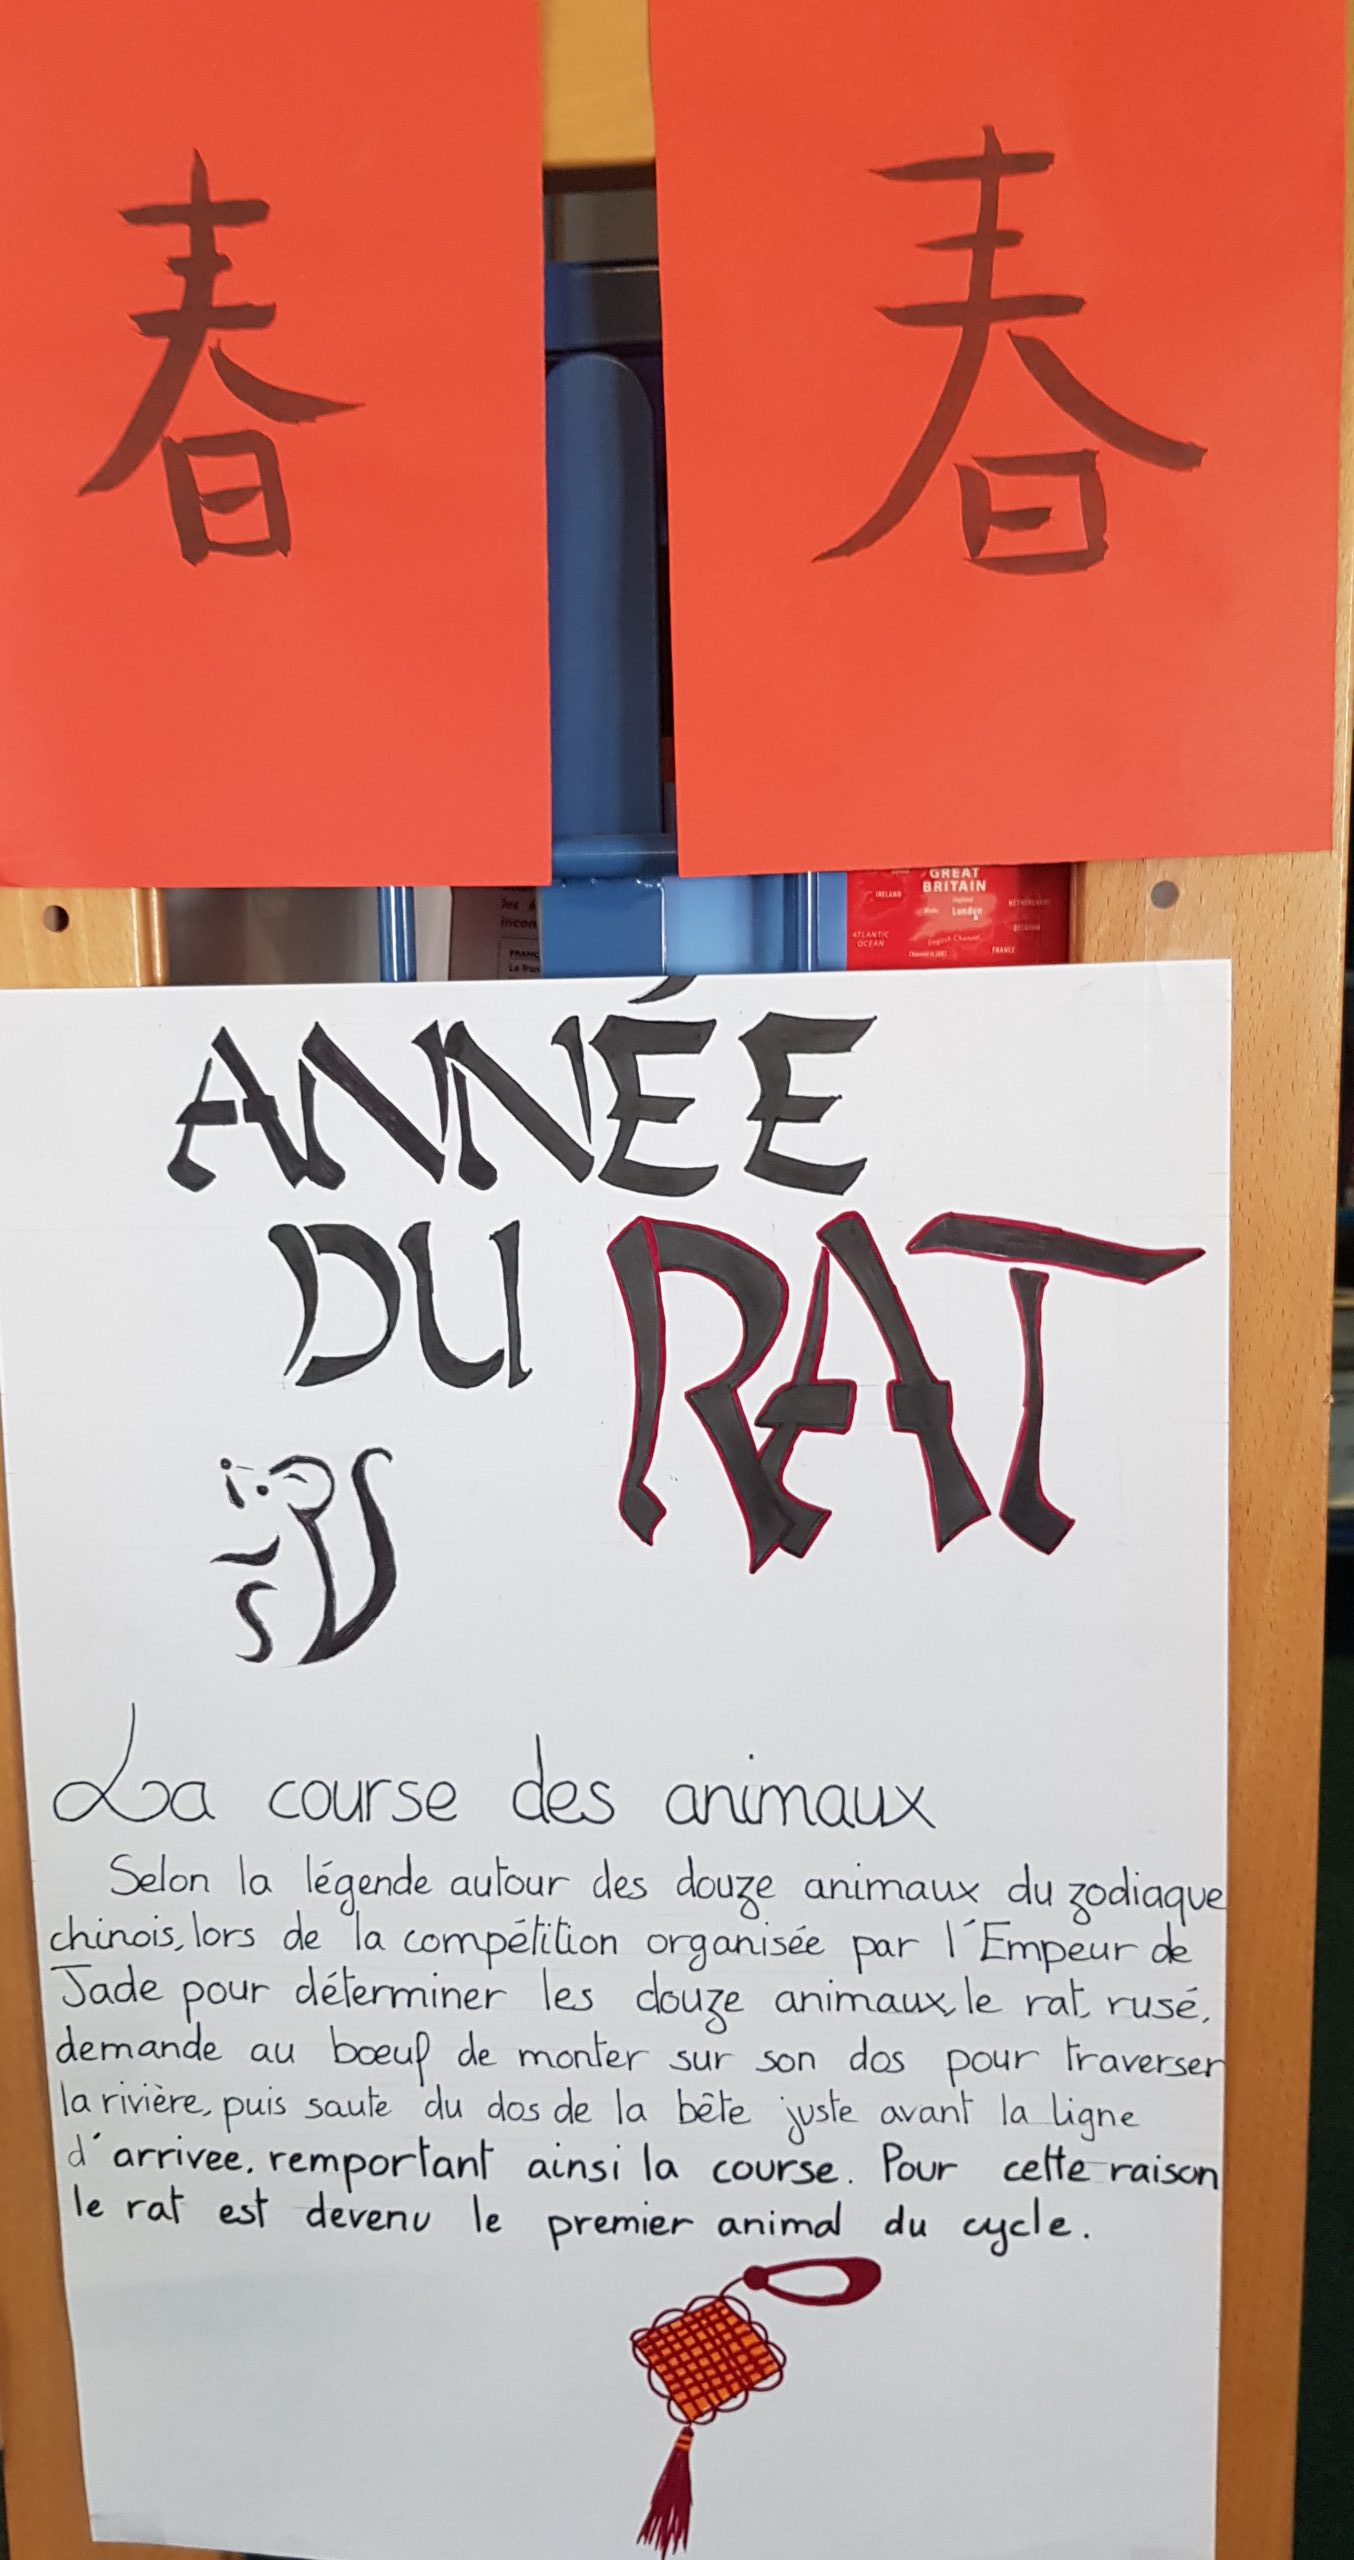 春 春
les
incon
FRANÇ
GREAT
BRITAIN
IRELAND
London
ATLANTIC
OCEAN
English Channel
BELGIUM
FRANCE
ANNÉE
DU RAT
La course des animaux
Selon la légende autour des douze animaux du zodiaque
chinois, lors de la compétition organisée par l'Empeur de
Jade pour déterminer les douze animaux, le rat, rusé,
demande au bœuf de monter sur son dos pour traverser
la rivière, puis saute du dos de la bête juste avant la ligne
d'arrivee, remportant ainsi la course. Pour cette raison
le rat est devenu le premier animal du cycle.